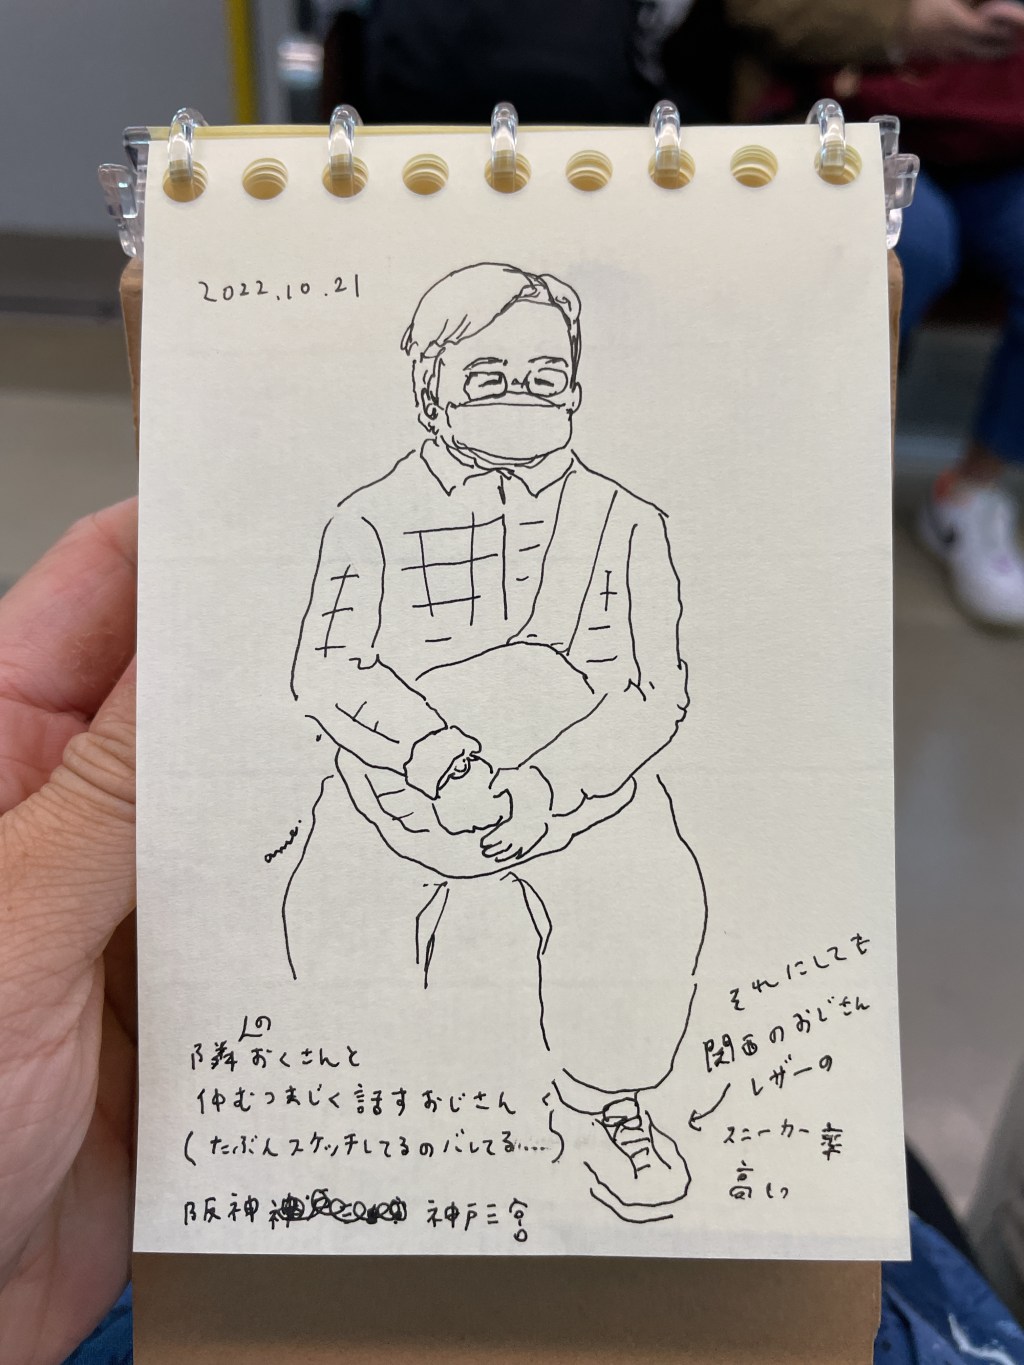 2022.10.21
ame.
隣のおくさんと
仲むつまじく話すおじさん
(たぶんスケッチしてるのバレてる.....)
阪神 神戸三宮
それにしても
関西のおじさん
レザーの
スニーカー率
高い